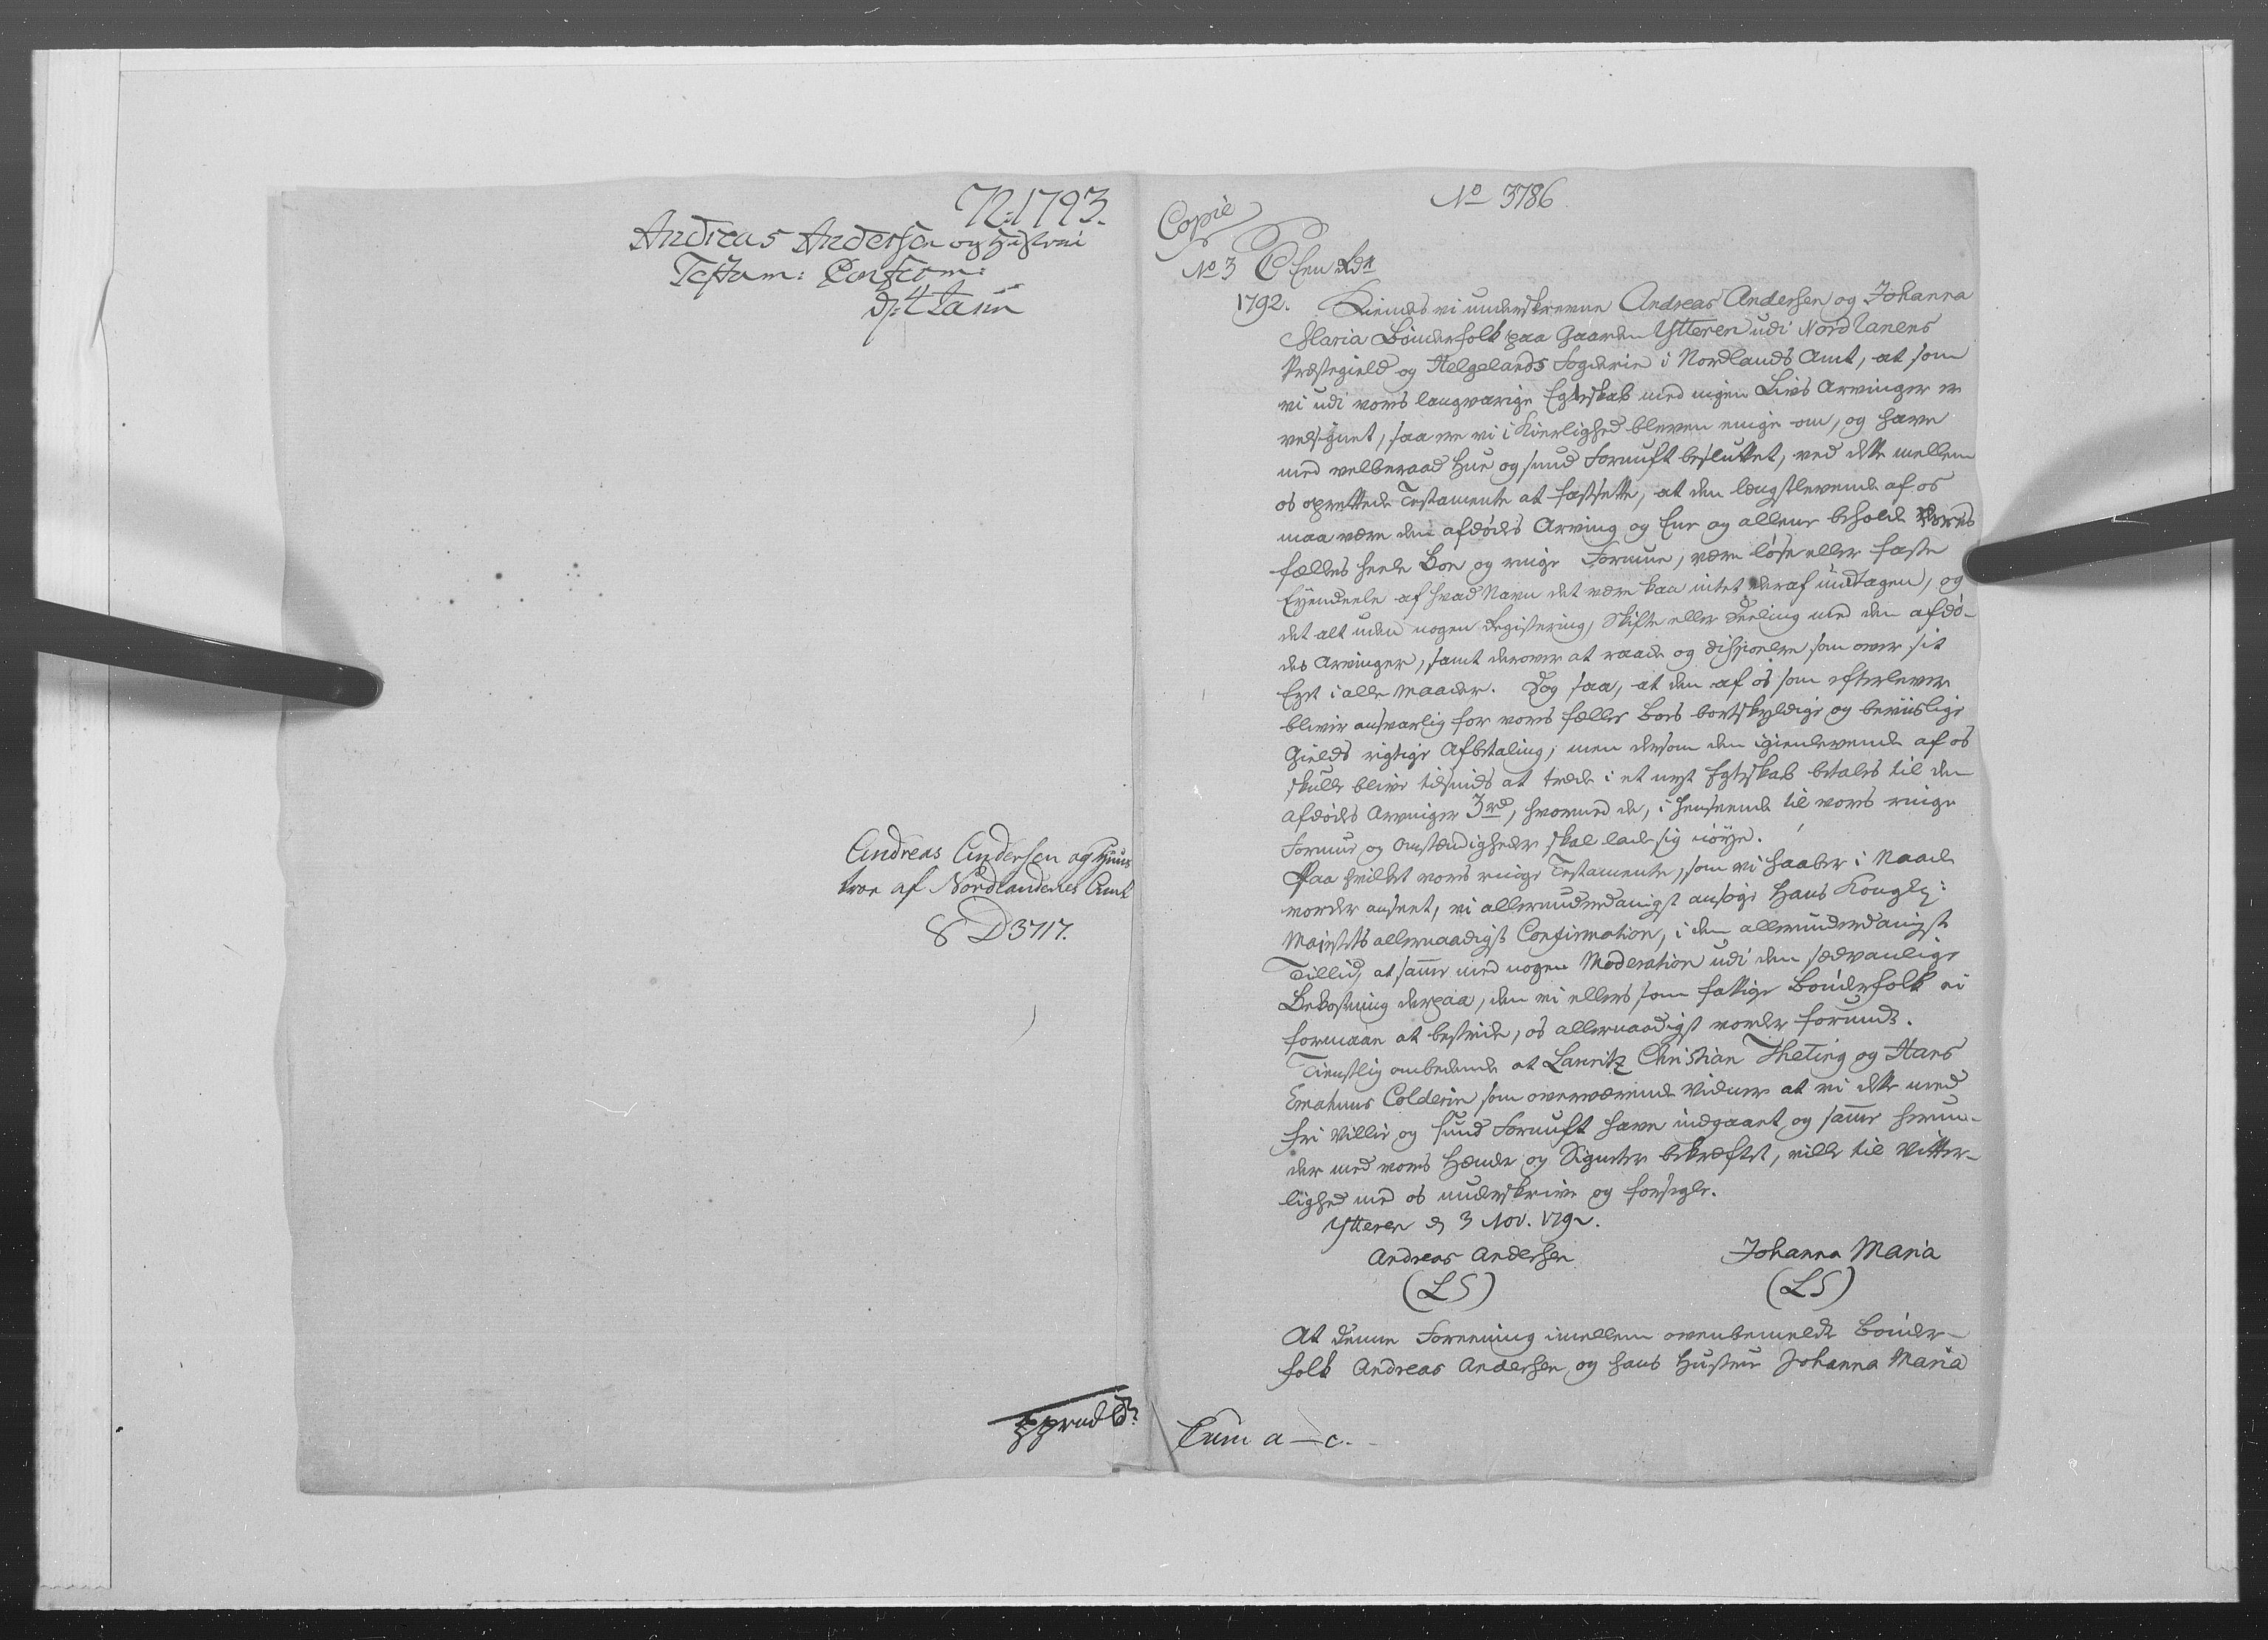 72:1793.
Andreas Andersen og Hustrue
Testam: Confirm:
d: 4 Janu
Andreas Andersen og Huus
troe af Nordlandenes Amt
8 D 3717.
No 3786.
Copie
No 3
1792. Kiendes vi underskrevne Andreas Andersen og Johanna
Maria Bønderfolk paa Gaarden Ytteren udi Nord Ranens
Præstegield og Helgelands Fogderie i Nordlands Amt, at som
vi udi vores langvarige Egteskab med ingen Livs Arvinger er
velsignet, saa ere vi i Kierlighed bleven enige om, og have
med velberaad Hue og sund Fornuft besluttet, ved dette mellem
os oprettede Testamente at fastsette, at den længstlevende af os
maa være den afdødes Arving og Ene og allene beholde vores
fælles heele Boe og ringe Formue, være løse eller faste
Eyendeele af hvad Navn det være kaa intet deraf undtagen, og
det alt uden nogen Registering, Skifte eller Deeling med den afdø-
des Arvinger, samt derover at raade og disponere som over sit
Eget i alle Maader. Dog saa, at den af os som efterlever
bliver ansvarlig for vores fælles Boes bortskyldige og beviislige
Gields rigtige Afbetaling; men dersom den igienlevende af os
skulle blive tilsinds at træde i et nyt Egteskab betales til den
afdødes Arvinger 3 rd, hvormed de, i Henseende til vores ringe
Formue og Omstændigheder skal lade sig nøye.
Paa hvilket vores ringe Testamente, som vi haaber i Naade
vorder anseet, vi allerunderdanigst ansøge Hans Kongly:
Majestets allernaadigst Confirmation, i den allerunderdanigste
Tillid, at samme med nogen Moderation udi den sædvanlige
Bekostning derpaa, den vi ellers som fattige Bønderfolk ei
formaaer at bestride, os allernaadigst vorder forundt.
Tienstlig ombedende at Lauritz Christian Theting og Hans
Erasmus Colderin som overværende Vidner at vi dette med
fri Villie og sund Fornuft have indgaaet og samme herun-
der med vores Hænder og Signeter bekræftet, ville til Vitter-
lighed med os underskrive og forsegle.
Ytteren d 3 Nov. 1792.
Andreas Andersen Johanna Maria
(LS) (LS)
At denne Foreening imellem ovenbemelte Bønder-
folk Andreas Andersen og hans Hustrue Johanna Maria
Cum a-c.